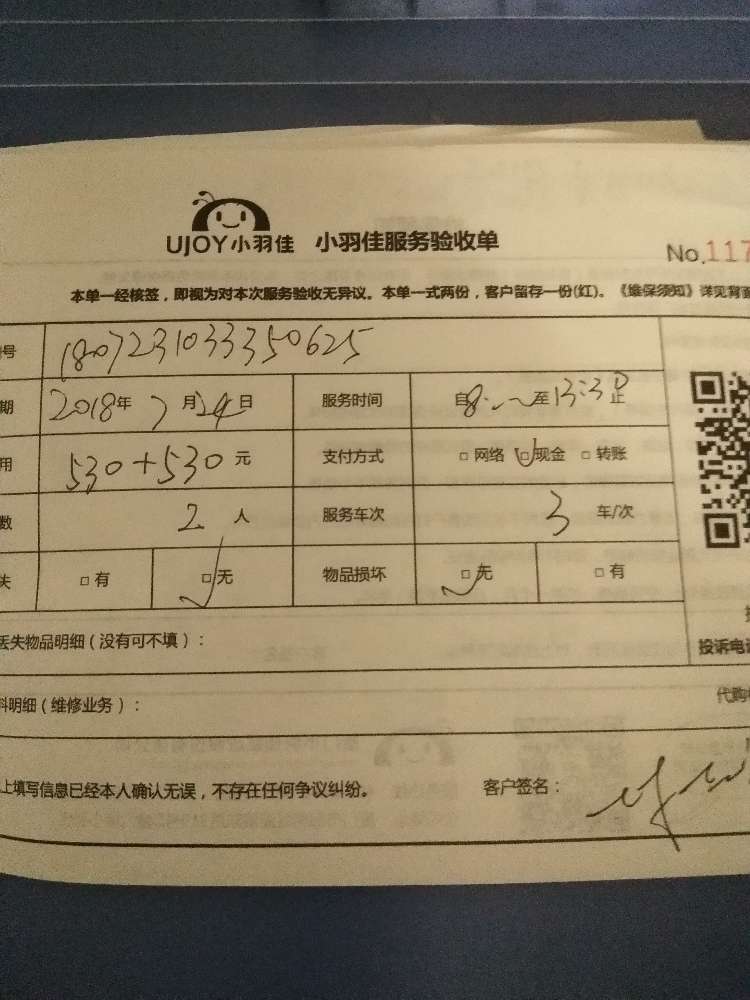 UJOY小羽佳 小羽佳服务验收单
No.117
本单一经核签，即视为对本次服务验收无异议。本单一式两份，客户留存一份(红)。《维保须知》详见背面
号 1807231033350625
期 2018年 7月24日 服务时间 自8:~至13:30止
用 530+530元 支付方式 □网络 □现金 □转账
数 2人 服务车次 3车/次
失 □有 □无 物品损坏 □无 □有
丢失物品明细（没有可不填）：
投诉电话
料明细（维修业务）： 代购
上填写信息已经本人确认无误，不存在任何争议纠纷。 客户签名：